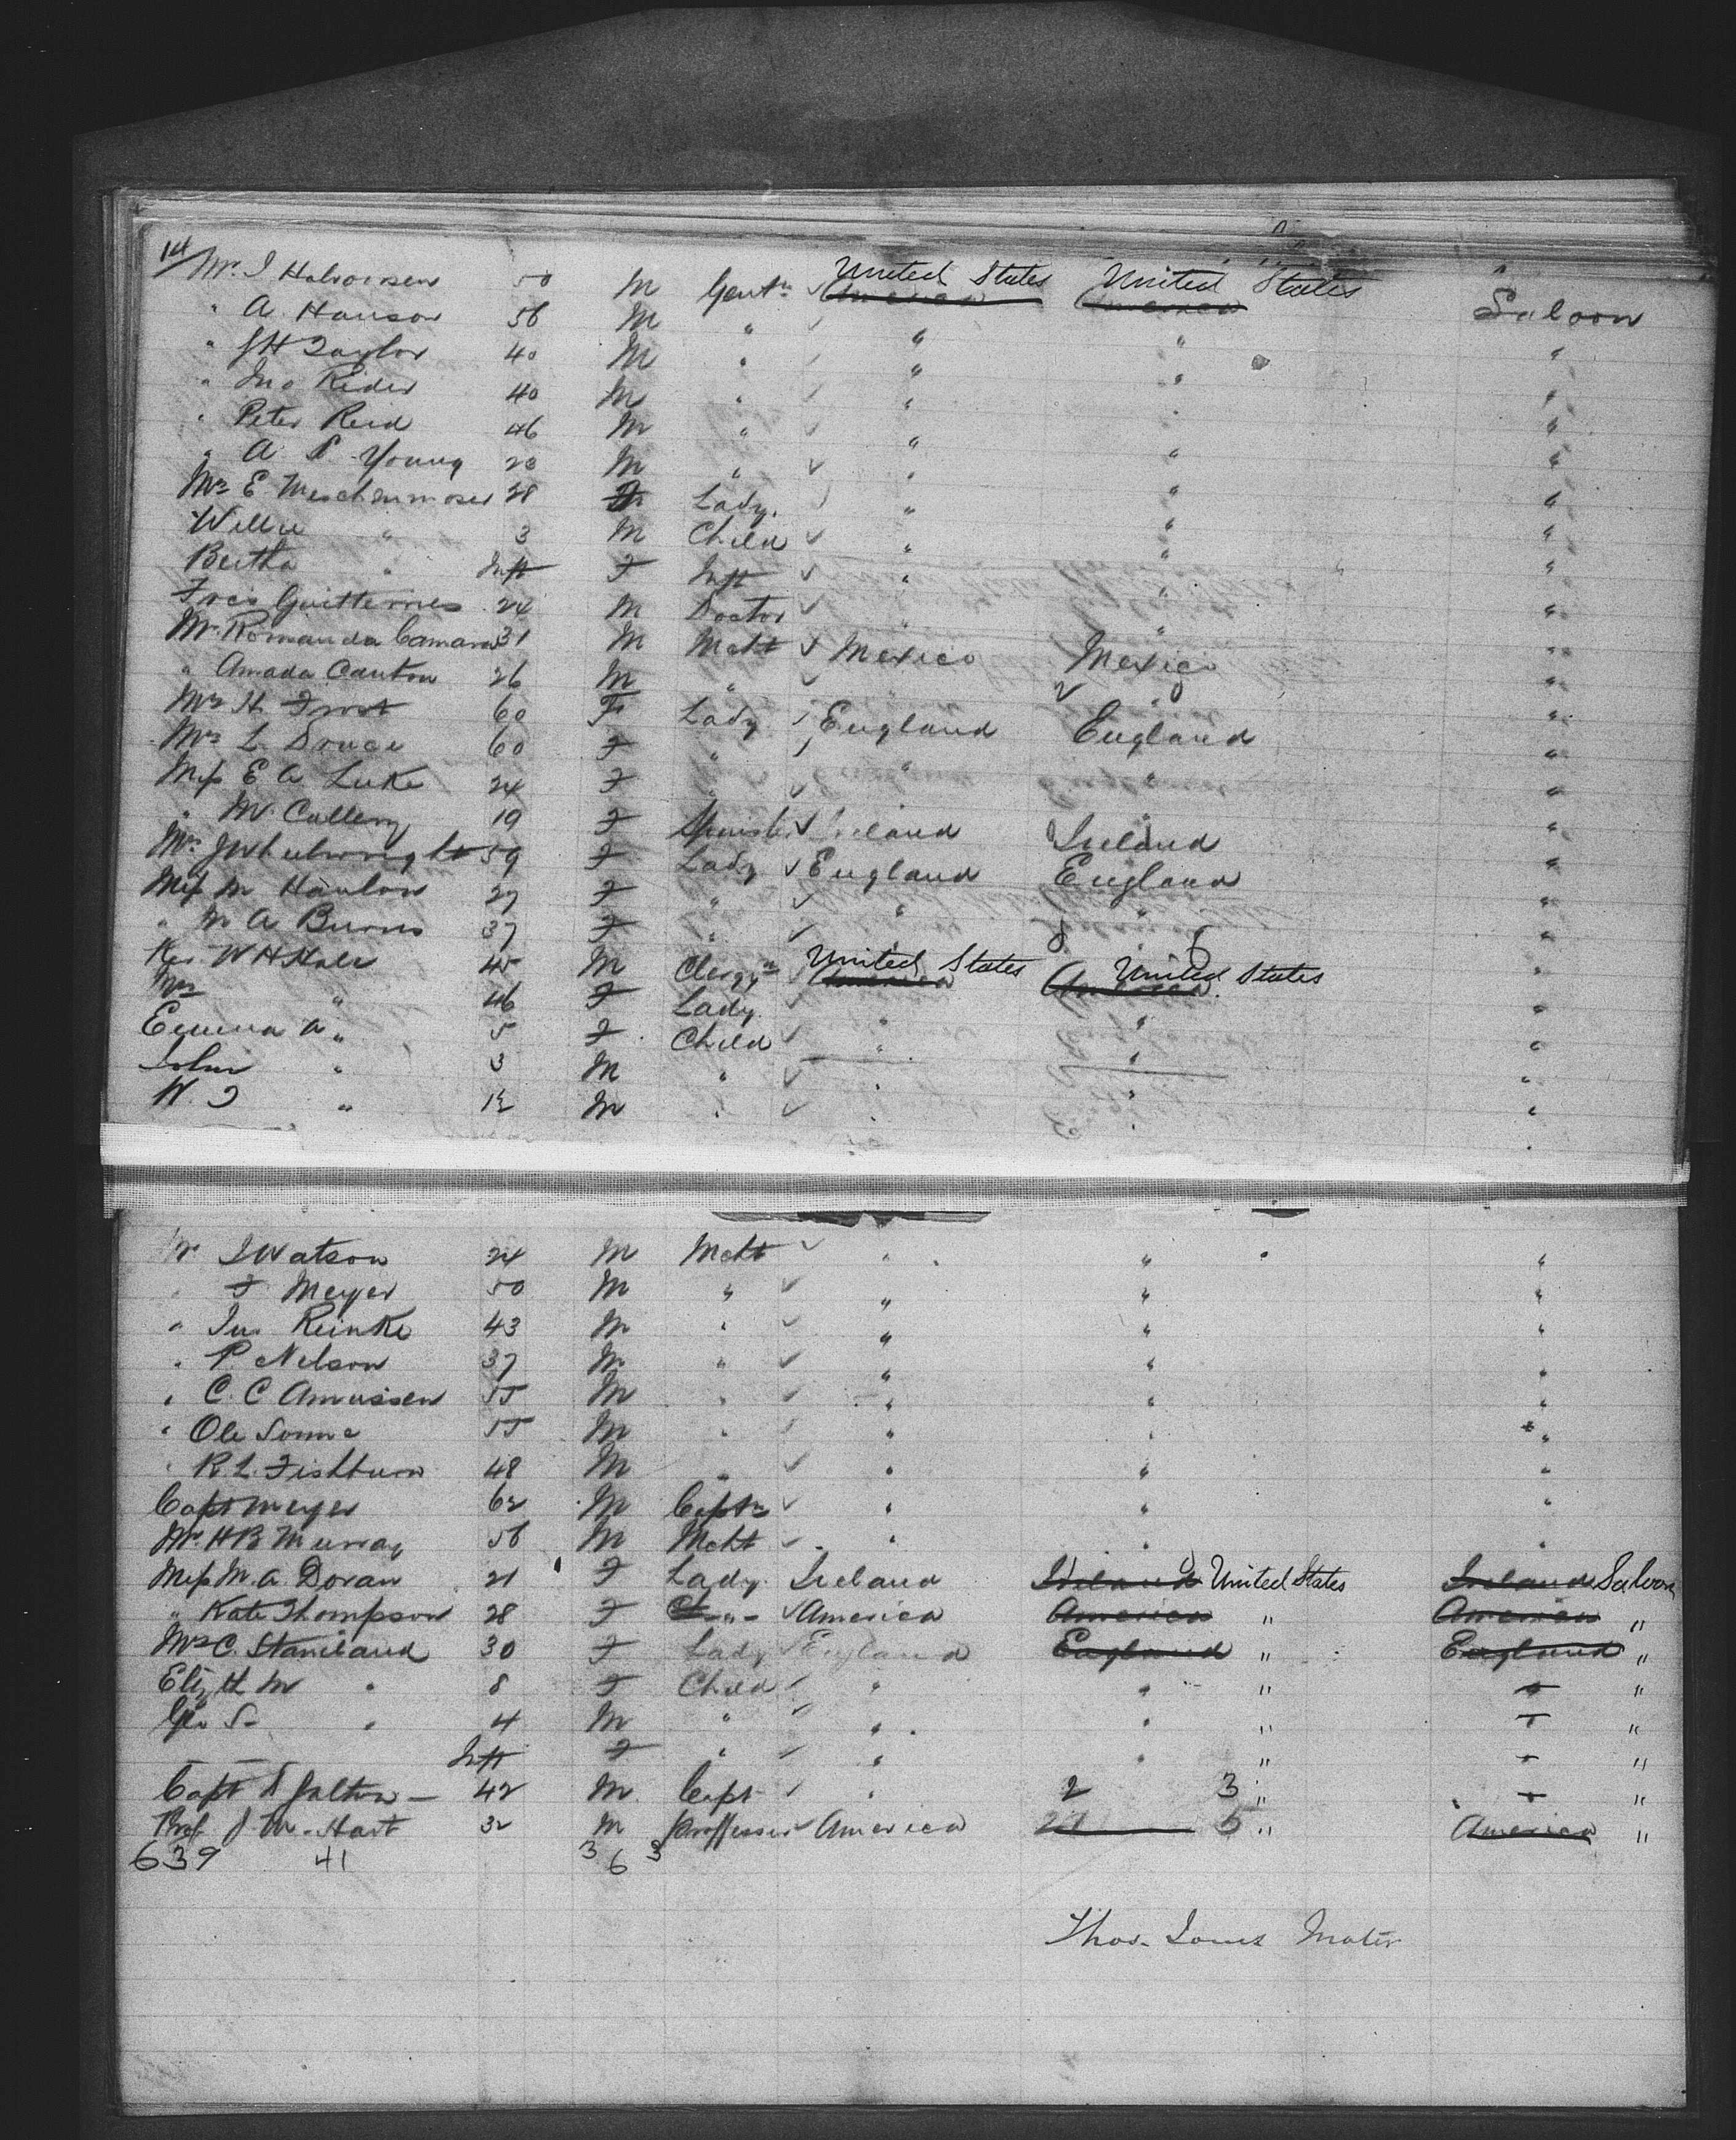 14
Mr. J Halvorsen 50 M Gentn ✓ United States America United States America Saloon
" A. Hanson 56 M " ✓ " " "
" J H Taylor 40 M " ✓ " " "
" Jno Rider 40 M " ✓ " " "
" Peter Reid 46 M " ✓ " " "
" A. P. Young 28 M " ✓ " " "
Mrs E. 28 F Lady. " " "
Willie " 3 M Child ✓ " " "
Bertha " Inft F Inft ✓ " " "
24 M Doctor ✓ " " "
Mr. Romanda Camara 31 M Mcht ✓ Mexico Mexico "
" Amada Canton 26 M " ✓ " " "
Mrs H. Frost 60 F Lady England England "
Mrs L. Druce 60 F " " " "
Miss E A Luke 24 F " ✓ " " "
" M. Culleny 19 F Spinster ✓ Ireland Ireland "
Mrs. J Wheelwright 59 F Lady ✓ England England "
Miss M Hanlon 27 F " ✓ " " "
" M A Burns 37 F " ✓ " " "
Rev. W H Hale 45 M Clergyn United States America United States America "
Mrs " 46 F Lady. ✓ " " "
Emma A " 5 F Child ✓ " " "
John " 3 M " ✓ " " "
W. J " 1½ M " ✓ " " "
Mr J Watson 24 M Mcht ✓ " " "
" F Meyer 50 M " ✓ " " "
" Jno Reinke 43 M " ✓ " " "
" P Nelson 37 M " ✓ " " "
" C. C Amussen 55 M " ✓ " " "
" Ole Sonne 55 M " ✓ " " "
" R. L. Fishburn 48 M " ✓ " " "
Capt Meyer 62 M Captn ✓ " " "
Mr. H B Murray 56 M Mcht ✓ " " "
Miss M. A. Doran 21 F Lady. Ireland Ireland United States Ireland Saloon
" Kate Thompson 28 F -"- ✓ America America " America "
Mrs C. Staniland 30 F Lady ✓ England England " England "
Elizth M " 8 F Child ✓ " " " "
Geo S- " 4 M " ✓ " " " "
Inft F " ✓ " " " "
Capt 42 M. Capt ✓ " 2 3 " "
Prof J. M. Hart 32 M Proffessor ✓ America 27 5 " America "
639 41 3 6 3
Thos. Jones Mater